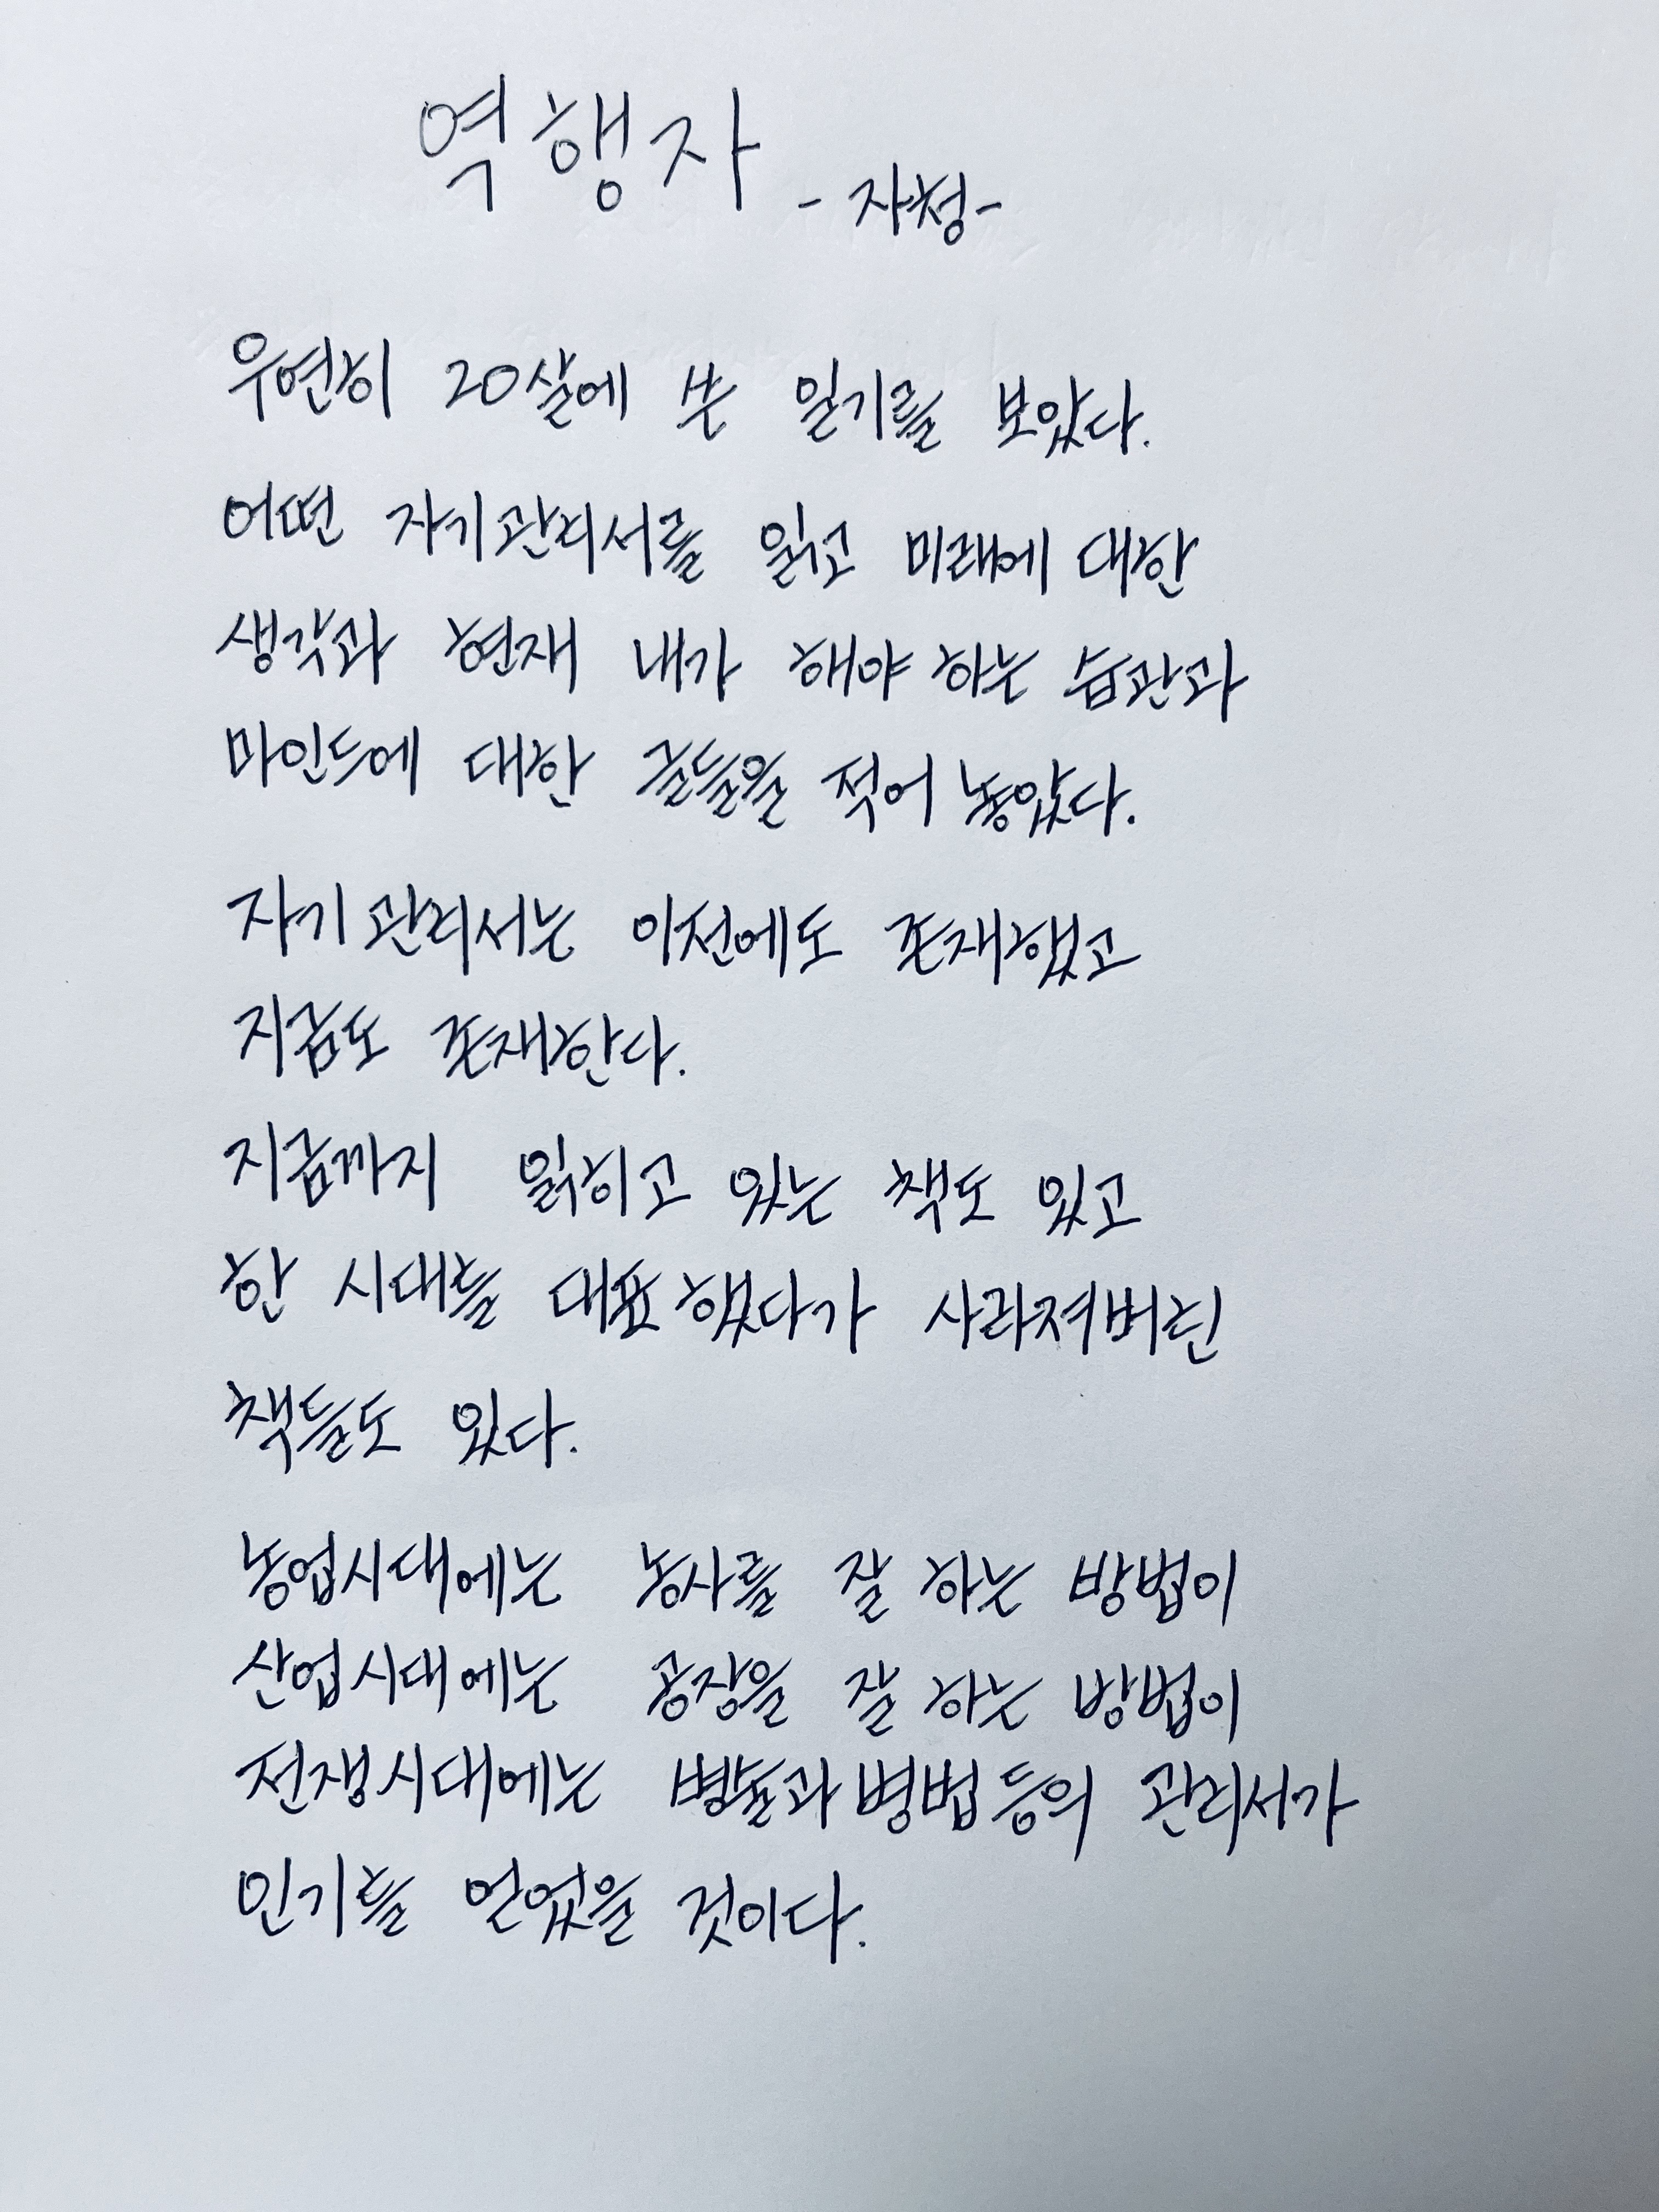 역행자
- 자청 -
우연히 20살에 쓴 일기를 보았다.
어떤 자기관리서를 읽고 미래에 대한
생각과 현재 내가 해야 하는 습관과
마인드에 대한 글들을 적어 놓았다.
자기관리서는 이전에도 존재했고
지금도 존재한다.
지금까지 읽히고 있는 책도 있고
한 시대를 대표했다가 사라져버린
책들도 있다.
농업시대에는 농사를 잘 하는 방법이
산업시대에는 공장을 잘 하는 방법이
전쟁시대에는 병술과 병법 등의 관리서가
인기를 얻었을 것이다.